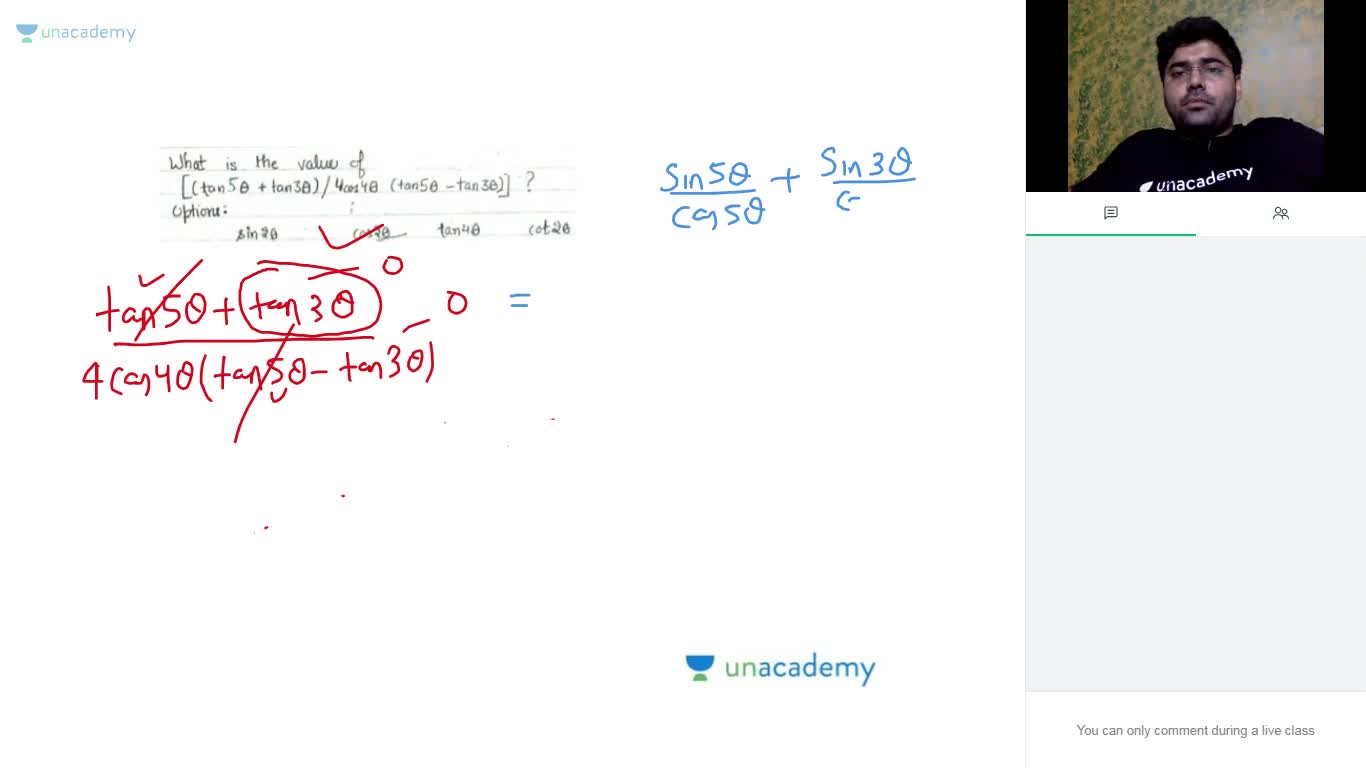 unacademy
What is the value of
[(tan5θ + tan3θ)/4cos4θ (tan5θ - tan3θ)] ?
Options:
sin2θ cos2θ tan4θ cot2θ
sin5θ/cos5θ + sin3θ/c
tan5θ + tan3θ 0 0 =
4cos4θ(tan5θ - tan3θ)
unacademy
unacademy
You can only comment during a live class